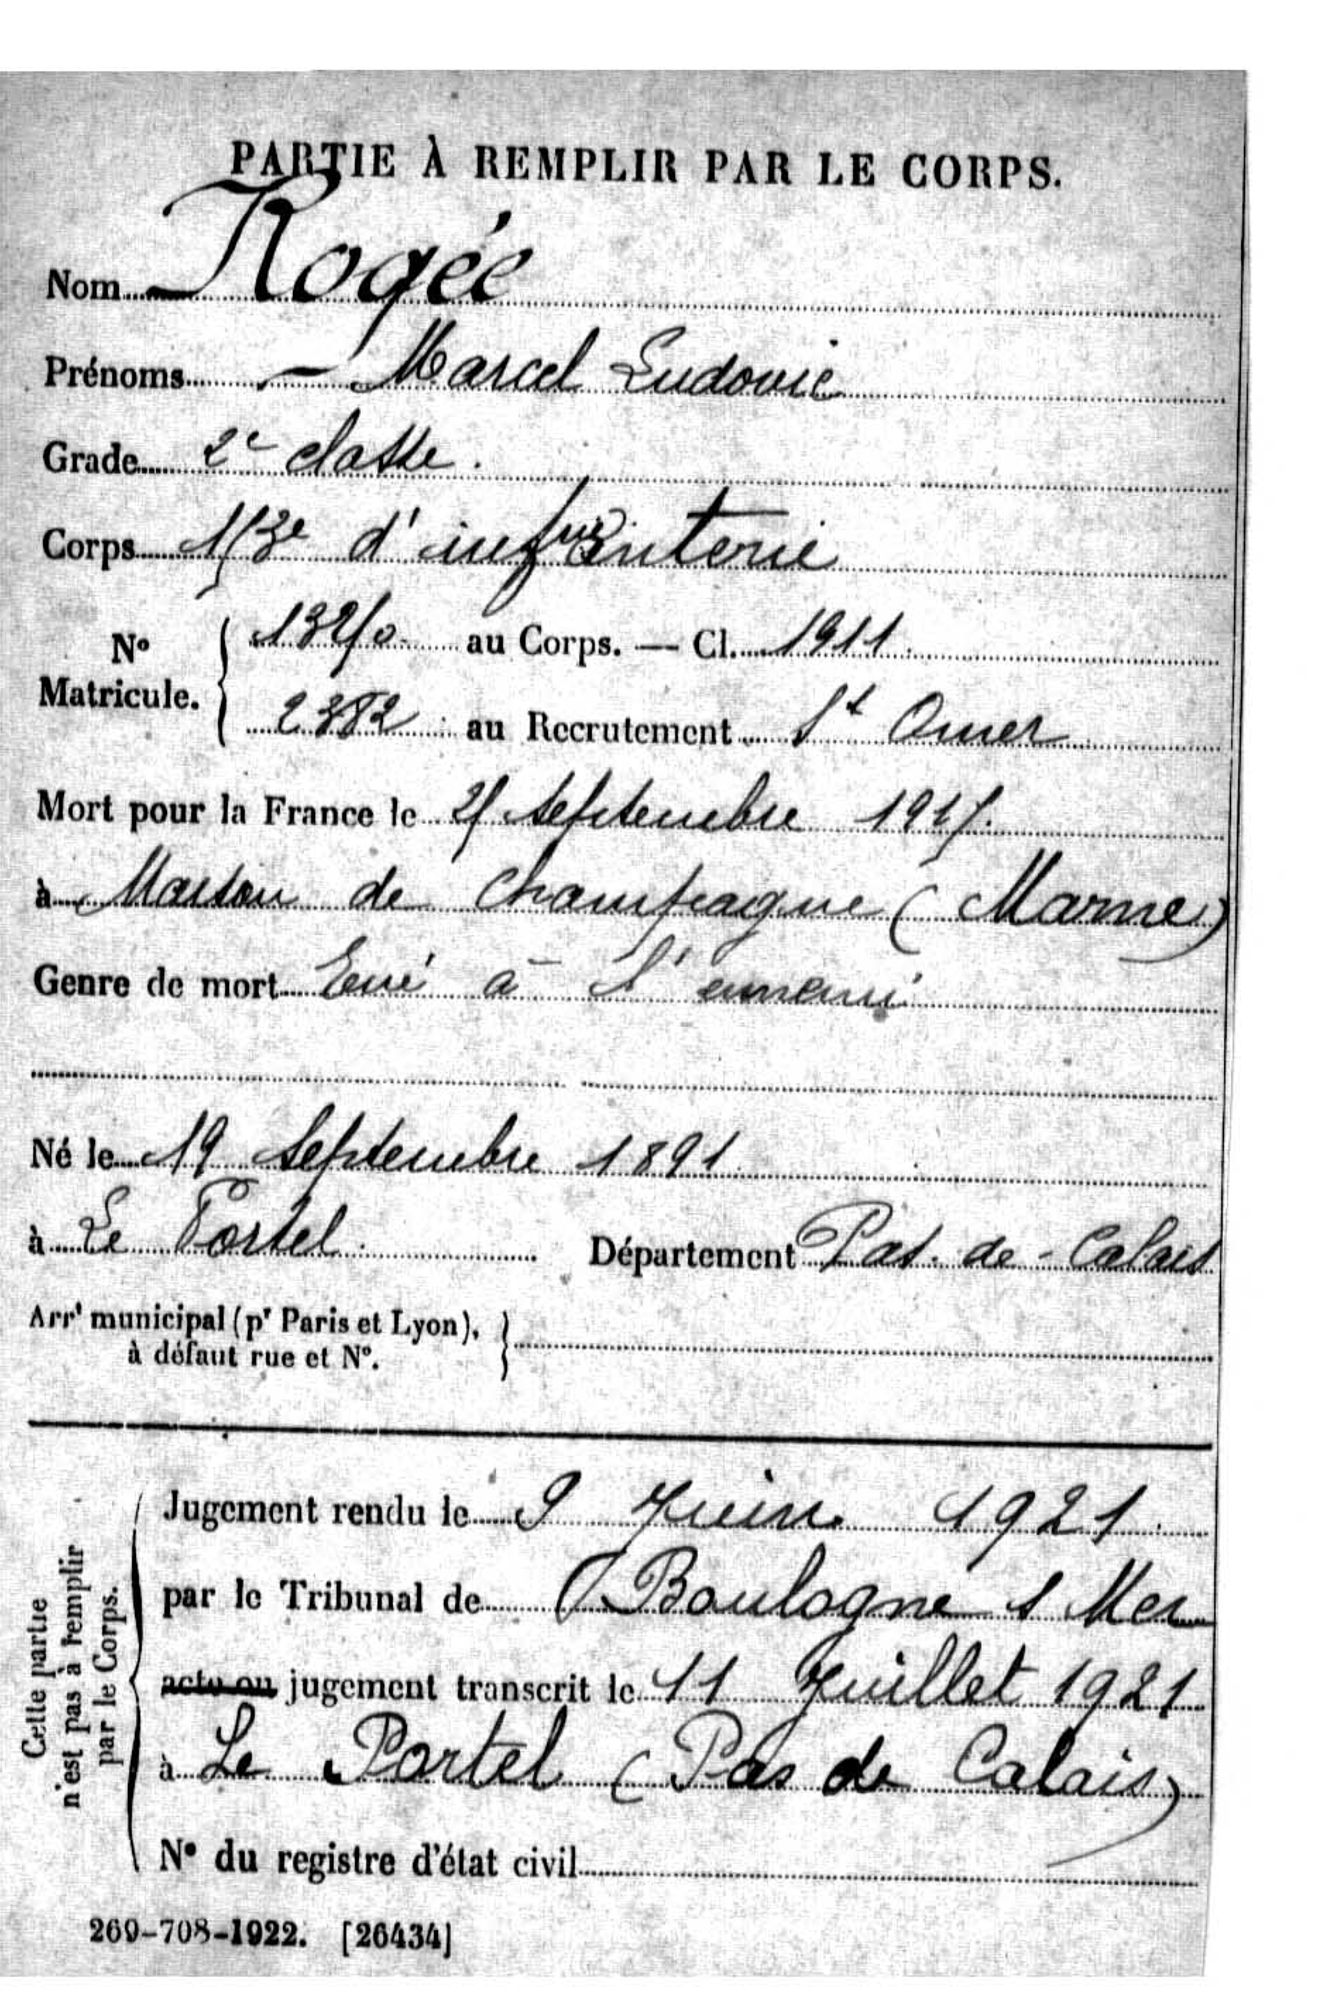 PARTIE À REMPLIR PAR LE CORPS.
Nom Rogée
Prénoms Marcel Ludovic
Grade 2e classe.
Corps 153e d'infanterie
N° Matricule. 13250 au Corps. — Cl. 1911
2382 au Recrutement St Omer
Mort pour la France le 25 septembre 1915.
à Maison de Champagne (Marne)
Genre de mort Tué à l'ennemi
Né le 19 septembre 1891
à Le Portel Département Pas-de-Calais
Arrt municipal (pr Paris et Lyon),
à défaut rue et N°.
Cette partie
n'est pas à remplir
par le Corps.
Jugement rendu le 9 Juin 1921
par le Tribunal de Boulogne s Mer
acte ou jugement transcrit le 11 Juillet 1921
à Le Portel (Pas de Calais)
N° du registre d'état civil
269-708-1922. [26434]